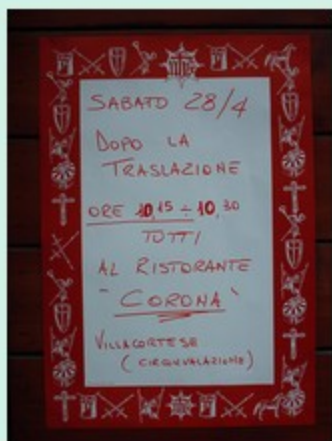 SABATO 28/4
DOPO LA
TRASLAZIONE
ORE 10,15 ÷ 10,30
TUTTI
AL RISTORANTE
"CORONA"
VILLACORTESE
(CIRCONVALAZIONE)